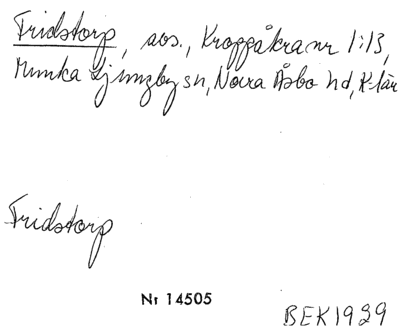 Fridstorp, sos., Kroppåkra nr 1:13,
Munka Ljungby sn, Norra Åsbo hd, K-län
Fridstorp
Nr 14505
BEK 1939